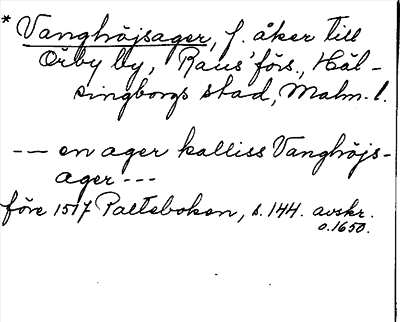 * Vanghöjsager, f. åker till
Örby by, Raus' förs., Häl-
singborgs stad, Malm. l.
-- en ager kalliss Vanghöjs-
ager ---
före 1517 Palteboken, s. 144. avskr.
o. 1650.